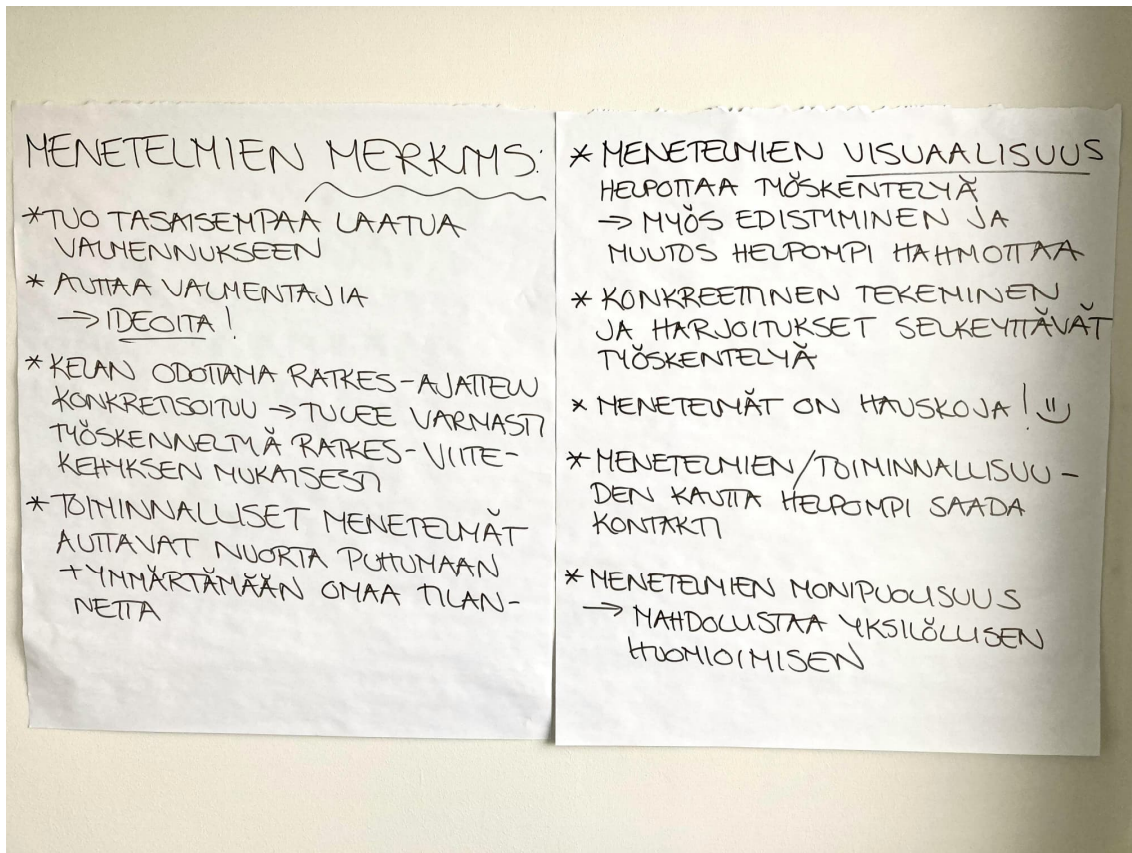 MENETELMIEN MERKITYS:
* TUO TASAISEMPAA LAATUA
VALMENNUKSEEN
* AUTTAA VALMENTAJIA
→ IDEOITA!
* KELAN ODOTTAMA RATKES-AJATTELU
KONKRETISOITUU → TULEE VARMASTI
TYÖSKENNELTYÄ RATKES-VIITE-
KEHYKSEN MUKAISESTI
* TOIMINNALLISET MENETELMÄT
AUTTAVAT NUORTA PUHUMAAN
+ YMMÄRTÄMÄÄN OMAA TILAN-
NETTA
* MENETELMIEN VISUAALISUUS
HELPOTTAA TYÖSKENTELYÄ
→ MYÖS EDISTYMINEN JA
MUUTOS HELPOMPI HAHMOTTAA
* KONKREETTINEN TEKEMINEN
JA HARJOITUKSET SELKEYTTÄVÄT
TYÖSKENTELYÄ
* MENETELMÄT ON HAUSKOJA! :)
* MENETELMIEN/TOIMINNALLISUU-
DEN KAUTTA HELPOMPI SAADA
KONTAKTI
* MENETELMIEN MONIPUOLISUUS
→ MAHDOLLISTAA YKSILÖLLISEN
HUOMIOIMISEN